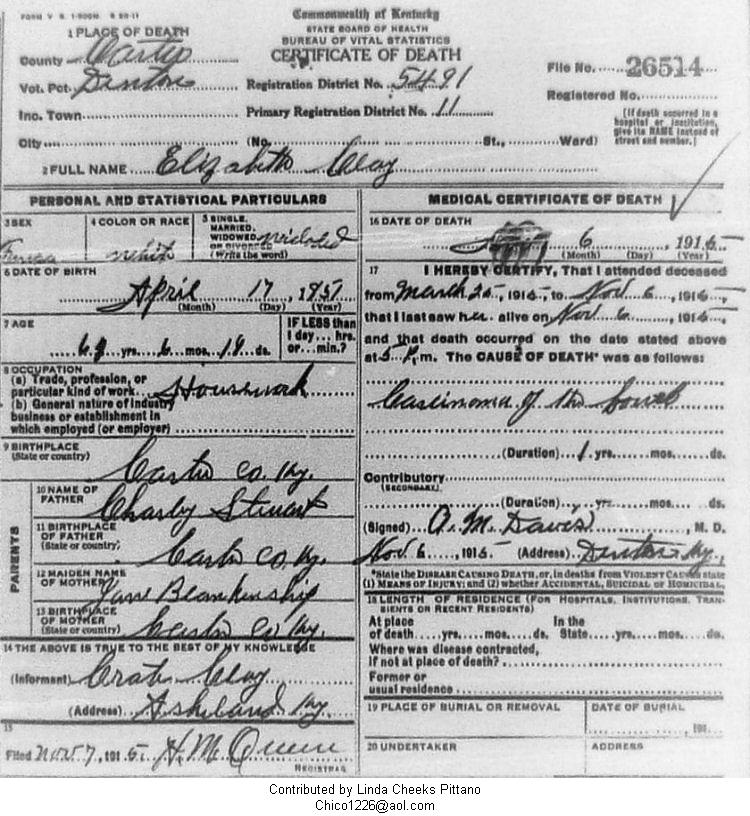 FORM V S. 1-500M 8 28-11
Commonwealth of Kentucky
STATE BOARD OF HEALTH
BUREAU OF VITAL STATISTICS
CERTIFICATE OF DEATH
1 PLACE OF DEATH
County Carter
Vot. Pct. Denton
Inc. Town
City
Registration District No. 5491
Primary Registration District No. 11
(No. St., Ward)
File No. 26514
Registered No.
[If death occurred in a
hospital or institution,
give its NAME instead of
street and number.]
2 FULL NAME Elizabeth Clay
PERSONAL AND STATISTICAL PARTICULARS
3 SEX
4 COLOR OR RACE white
5 SINGLE,
MARRIED,
WIDOWED
OR DIVORCED
(Write the word)
widowed
6 DATE OF BIRTH
April 17, 1851
(Month) (Day) (Year)
7 AGE
yrs. 6 mos. 19 ds.
IF LESS than
1 day... hrs.
or... min.?
8 OCCUPATION
(a) Trade, profession, or
particular kind of work Housework
(b) General nature of industry
business or establishment in
which employed (or employer)
9 BIRTHPLACE
(State or country)
Carter Co. Ky.
PARENTS
10 NAME OF
FATHER
Charley Stewart
11 BIRTHPLACE
OF FATHER
(State or country)
Carter Co Ky.
12 MAIDEN NAME
OF MOTHER
Jane Blankenship
13 BIRTHPLACE
OF MOTHER
(State or country)
Carter Co Ky.
14 THE ABOVE IS TRUE TO THE BEST OF MY KNOWLEDGE
(Informant) Clay
(Address) Ashland Ky.
15
Filed Nov 7, 1915 H. M. Queen
REGISTRAR
MEDICAL CERTIFICATE OF DEATH
16 DATE OF DEATH
6, 1915
(Month) (Day) (Year)
17 I HEREBY CERTIFY, That I attended deceased
from March 25, 1915, to Nov 6, 1915,
that I last saw her alive on Nov 6, 1915,
and that death occurred on the date stated above
at 5 P.m. The CAUSE OF DEATH* was as follows:
Carcinoma of the bowels
(Duration) 1 yrs. mos. ds.
Contributory
(SECONDARY)
(Duration) yrs. mos. ds.
(Signed) M. D.
Nov 6, 1915 (Address) Denton Ky.
*State the DISEASE CAUSING DEATH, or, in deaths from VIOLENT CAUSES state
(1) MEANS OF INJURY; and (2) whether ACCIDENTAL, SUICIDAL or HOMICIDAL.
18 LENGTH OF RESIDENCE (FOR HOSPITALS, INSTITUTIONS, TRAN-
SIENTS OR RECENT RESIDENTS)
At place
of death yrs. mos. ds.
In the
State yrs. mos. ds.
Where was disease contracted,
if not at place of death?
Former or
usual residence
19 PLACE OF BURIAL OR REMOVAL
DATE OF BURIAL
191
20 UNDERTAKER
ADDRESS
Contributed by Linda Cheeks Pittano
Chico1226@aol.com